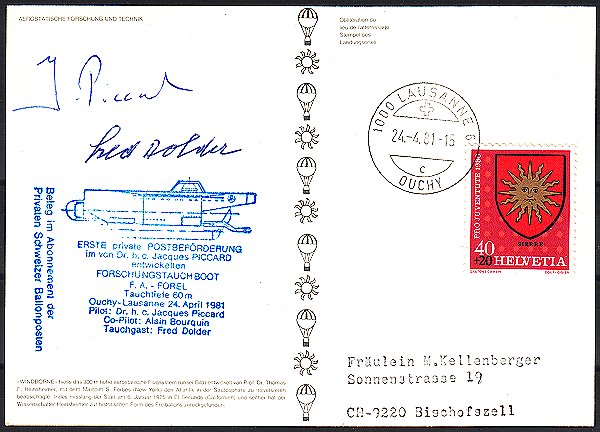 AEROSTATISCHE FORSCHUNG UND TECHNIK
Oblitération du
lieu de l'atterrissage
Stempel des
Landungsortes
J. Piccard
Fred Dolder
1000 LAUSANNE 6
24.-4.81-15
c
OUCHY
PRO JUVENTUTE 1980
SIERRE
40
+20 HELVETIA
Beleg im Abonnement der
Privaten Schweizer Ballonposten
ERSTE private POSTBEFÖRDERUNG
im von Dr. h. c. Jacques PICCARD
entwickelten
FORSCHUNGSTAUCHBOOT
F. A. - FOREL
Tauchtiefe 60m
Ouchy-Lausanne 24. April 1981
Pilot: Dr. h. c. Jacques Piccard
Co-Pilot: Alain Bourquin
Tauchgast: Fred Dolder
Fräulein M.Kellenberger
Sonnenstrasse 19
CH-9220 Bischofszell